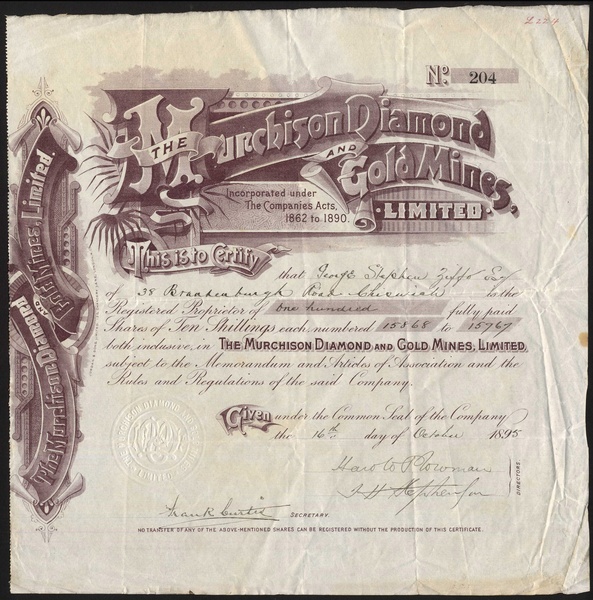 £224
No. 204
THE
Murchison Diamond
AND
Gold Mines,
LIMITED.
Incorporated under
The Companies Acts,
1862 to 1890.
This is to Certify
that George Stephen Esq
of 38 Road Chiswick is the
Registered Proprietor of One hundred fully paid
Shares of Ten Shillings each numbered 15668 to 15767
both inclusive, in THE MURCHISON DIAMOND AND GOLD MINES, LIMITED,
subject to the Memorandum and Articles of Association and the
Rules and Regulations of the said Company.
Given under the Common Seal of the Company
the 16th day of October 1895
DIRECTORS.
Frank Curtis SECRETARY.
NO TRANSFER OF ANY OF THE ABOVE-MENTIONED SHARES CAN BE REGISTERED WITHOUT THE PRODUCTION OF THIS CERTIFICATE.
The Murchison Diamond
AND
Gold Mines, Limited.